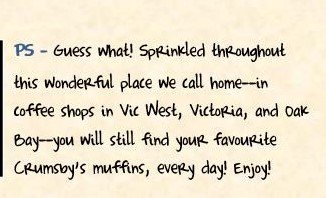 PS - Guess what! Sprinkled throughout
this wonderful place we call home--in
coffee shops in Vic West, Victoria, and Oak
Bay--you will still find your favourite
Crumsby's muffins, every day! Enjoy!